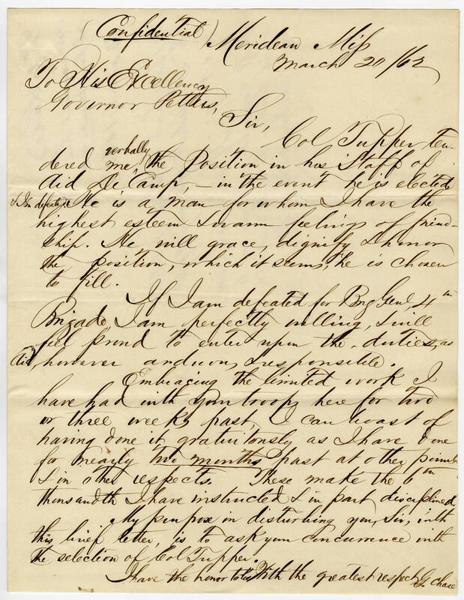 (Confidential) Meridean Miss
March 20/62
To His Excellency
Governor Pettus,
Sir,
Col Tupper ten-
dered verbally me, the Position in his Staff of
Aid De Camp, - in the event he is elected
He is a man for whom I have the
highest esteem & warm feelings of friend-
ship. He will grace, dignify & honor
the position, which it seems, he is chosen
to fill.
If I am defeated for Brig Genl 4th
Brigade, I am perfectly willing, & will
feel proud to enter upon the duties, as
Aid, however arduous, & responsible.
Embracing the limited work I
have had with your troops here for two
or three weeks past, I can boast of
having done it gratuitously as I have done
for nearly two months past at other points
& in other respects. These make the 6
thousandth I have instructed & in part disciplined
My purpose in disturbing you, Sir, with
this brief letter, is to ask your concurrence with
the selection of Col Tupper.
I have the honor to be With the greatest respect G. Chase